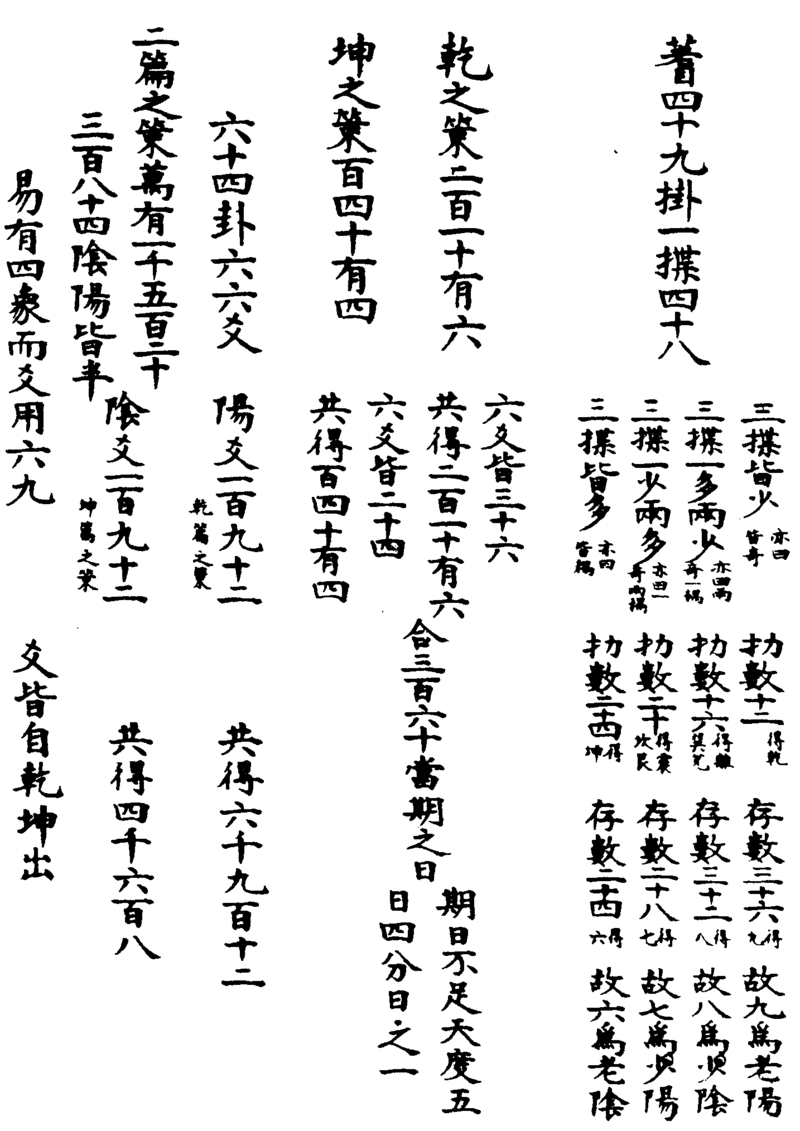 蓍四十九掛一揲四十八
三揲皆少 亦曰皆奇 扐數十二 得乾 存數三十六 得九 故九爲老陽
三揲一多兩少 亦曰兩奇一耦 扐數十六 得離巽兌 存數三十二 得八 故八爲少陰
三揲一少兩多 亦曰一奇兩耦 扐數二十 得震坎艮 存數二十八 得七 故七爲少陽
三揲皆多 亦曰皆耦 扐數二十四 得坤 存數二十四 得六 故六爲老陰
乾之策二百一十有六
六爻皆三十六
共得二百一十有六
坤之策百四十有四
六爻皆二十四
共得百四十有四
合三百六十當期之日
期日不足天度五
日四分日之一
六十四卦六六爻
陽爻一百九十二 乾篇之策
共得六千九百十二
二篇之策萬有一千五百二十
三百八十四陰陽皆半
陰爻一百九十二 坤篇之策
共得四千六百八
易有四象而爻用六九
爻皆自乾坤出